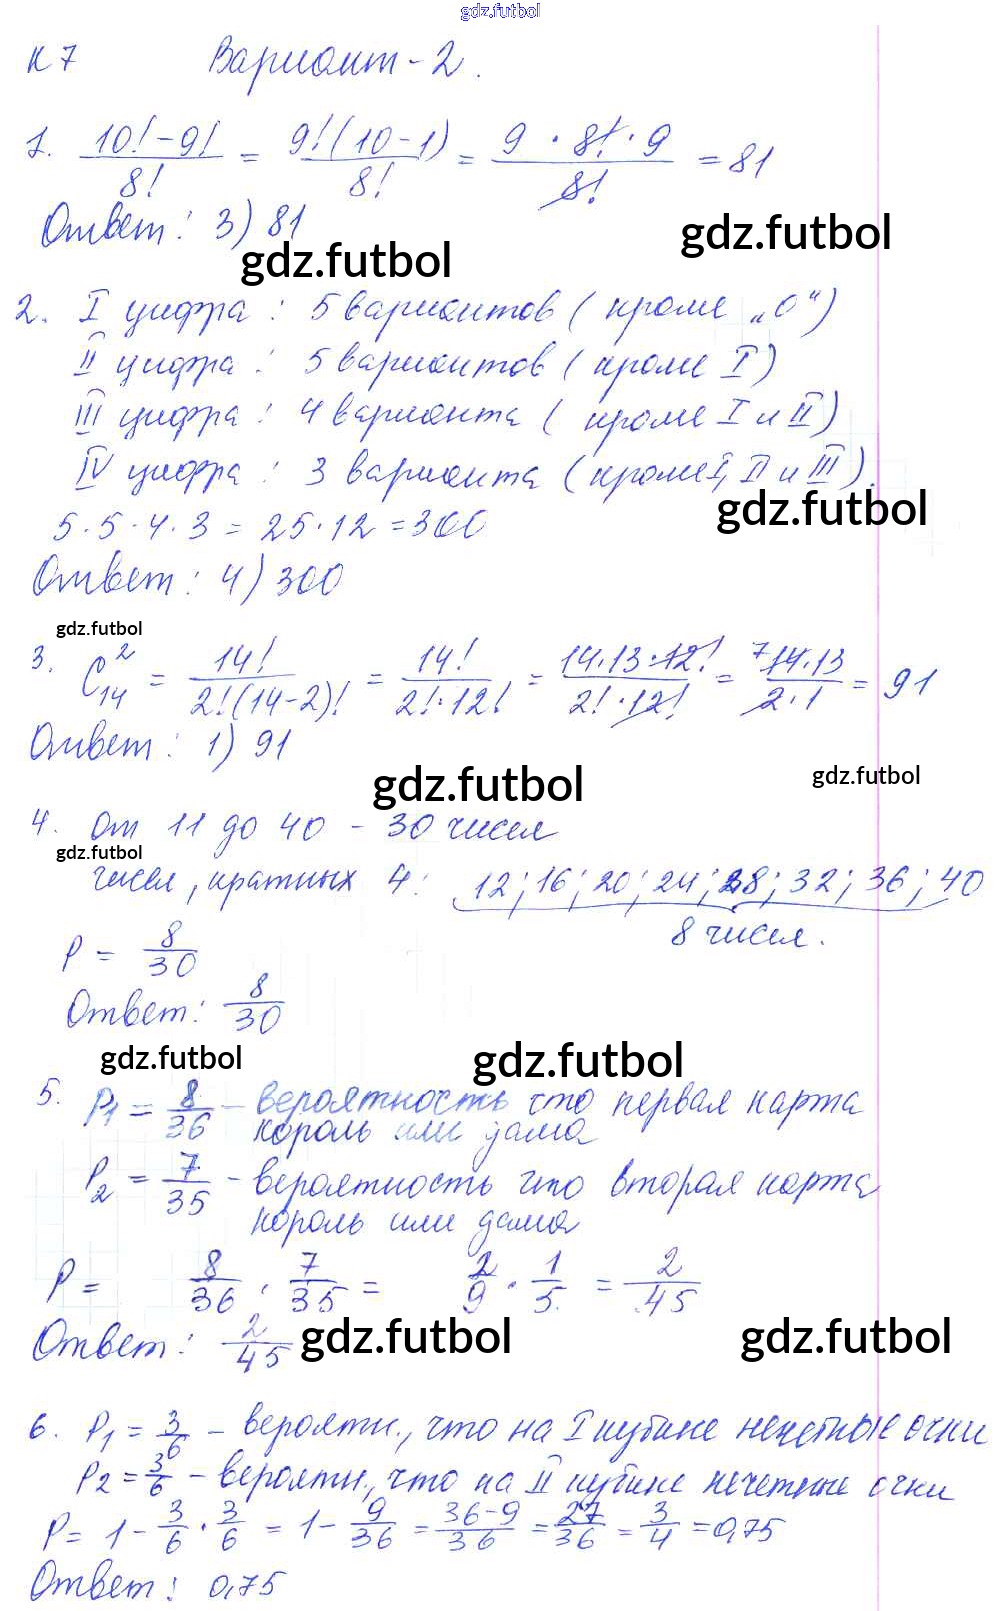 gdz.futbol
К 7 Вариант - 2.
1. (10! - 9!)/8! = 9!(10 - 1)/8! = (9 · 8! · 9)/8! = 81
Ответ: 3) 81
gdz.futbol
gdz.futbol
2. I цифра: 5 вариантов (кроме „0“)
II цифра: 5 вариантов (кроме I)
III цифра: 4 варианта (кроме I и II)
IV цифра: 3 варианта (кроме I, II и III).
gdz.futbol
5 · 5 · 4 · 3 = 25 · 12 = 300
Ответ: 4) 300
gdz.futbol
3. C₁₄² = 14!/(2!(14-2)!) = 14!/(2!·12!) = (14·13·12!)/(2!·12!) = ⁷(14·13)/(2·1) = 91
Ответ: 1) 91
gdz.futbol
gdz.futbol
4. От 11 до 40 - 30 чисел
gdz.futbol
чисел, кратных 4: 12; 16; 20; 24; 28; 32; 36; 40
8 чисел.
P = 8/30
Ответ: 8/30
gdz.futbol
gdz.futbol
5. P₁ = 8/36 - вероятность что первая карта
король или дама
P₂ = 7/35 - вероятность что вторая карта
король или дама
P = 8/36 · 7/35 = 2/9 · 1/5 = 2/45
Ответ: 2/45
gdz.futbol
gdz.futbol
6. P₁ = 3/6 - вероятн., что на I кубике нечетные очки
P₂ = 3/6 - вероятн., что на II кубике нечетные очки
P = 1 - 3/6 · 3/6 = 1 - 9/36 = (36-9)/36 = 27/36 = 3/4 = 0,75
Ответ: 0,75